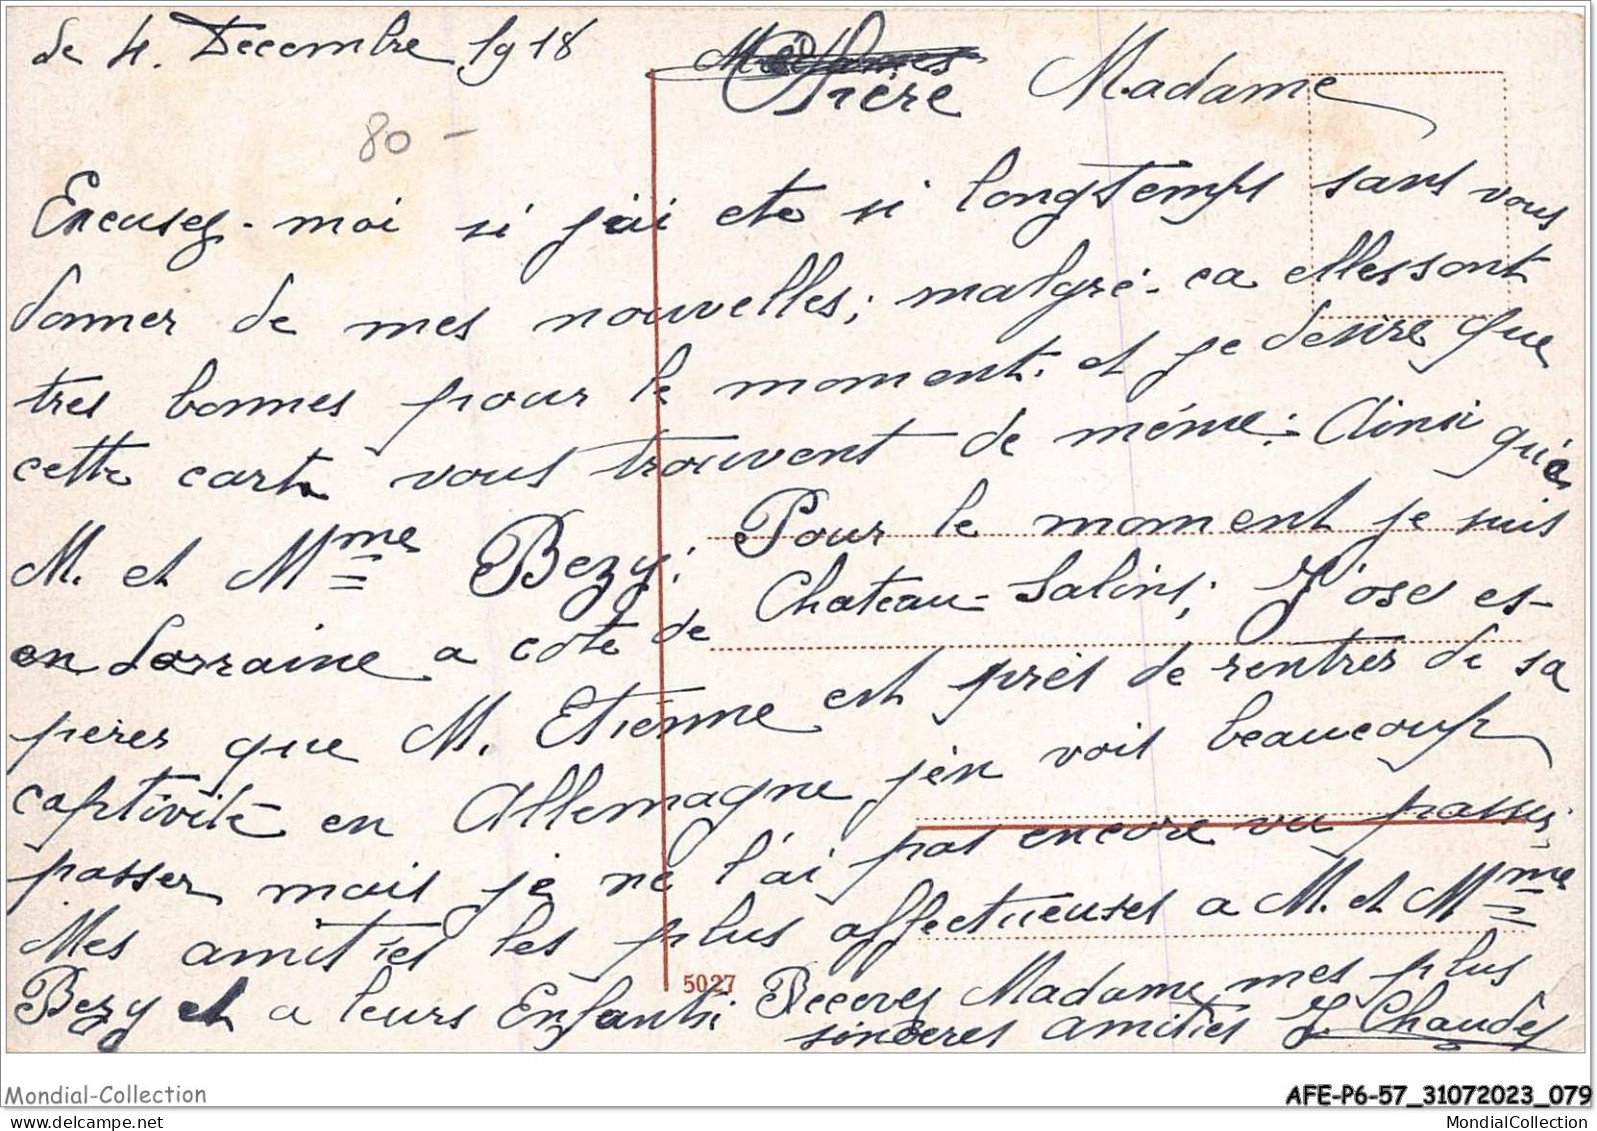 de 4. Decembre 1918
Chère Madame
80 -
Excusez-moi si j'ai ete si longtemps sans vous
donner de mes nouvelles; malgré-ca elles sont
tres bonnes pour le moment. et je desire que
cette carte vous trouvent de méme. Ainsi qu'a
M. et Mme Bezy; Pour le moment je suis
en Lorraine a coté de Chateau-Salins; J'ose es-
perer que M. Etienne est prés de rentrer de sa
captivité en Allemagne j'en voit beaucoup
passer mais je ne l'ai pas encore vu passer.
Mes amitiés les plus affectueuses a M. et Mme
Bezy et a leurs Enfants. Recevez Madame mes plus
sinceres amitiés J. Chaudès
5027
Mondial-Collection
AFE-P6-57_31072023_079
MondialCollection